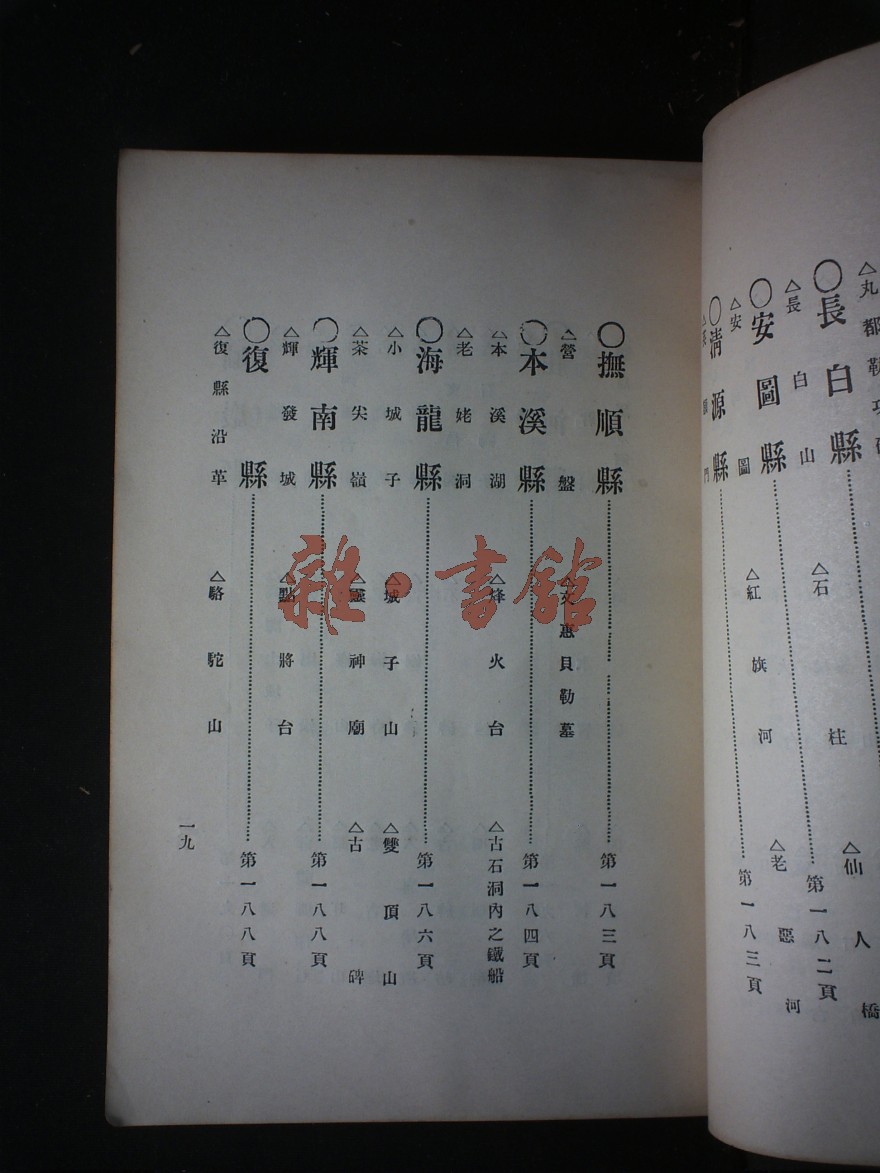 △丸都勒功
〇長白縣 第一八二頁
△長白山 △石柱 △仙人橋
〇安圖縣 第一八三頁
△安圖 △紅旗河 △老惡河
〇清源縣
門
〇撫順縣 第一八三頁
△營盤 △文惠貝勒墓
〇本溪縣 第一八四頁
△本溪湖 △烽火台 △古石洞內之鐵船
△老姥洞
〇海龍縣 第一八六頁
△小城子 △城子山 △雙頂山
△茶尖嶺 △靈神廟 △古碑
〇輝南縣 第一八八頁
△輝發城 △點將台
〇復縣 第一八八頁
△復縣沿革 △駱駝山
一九
雜·書館